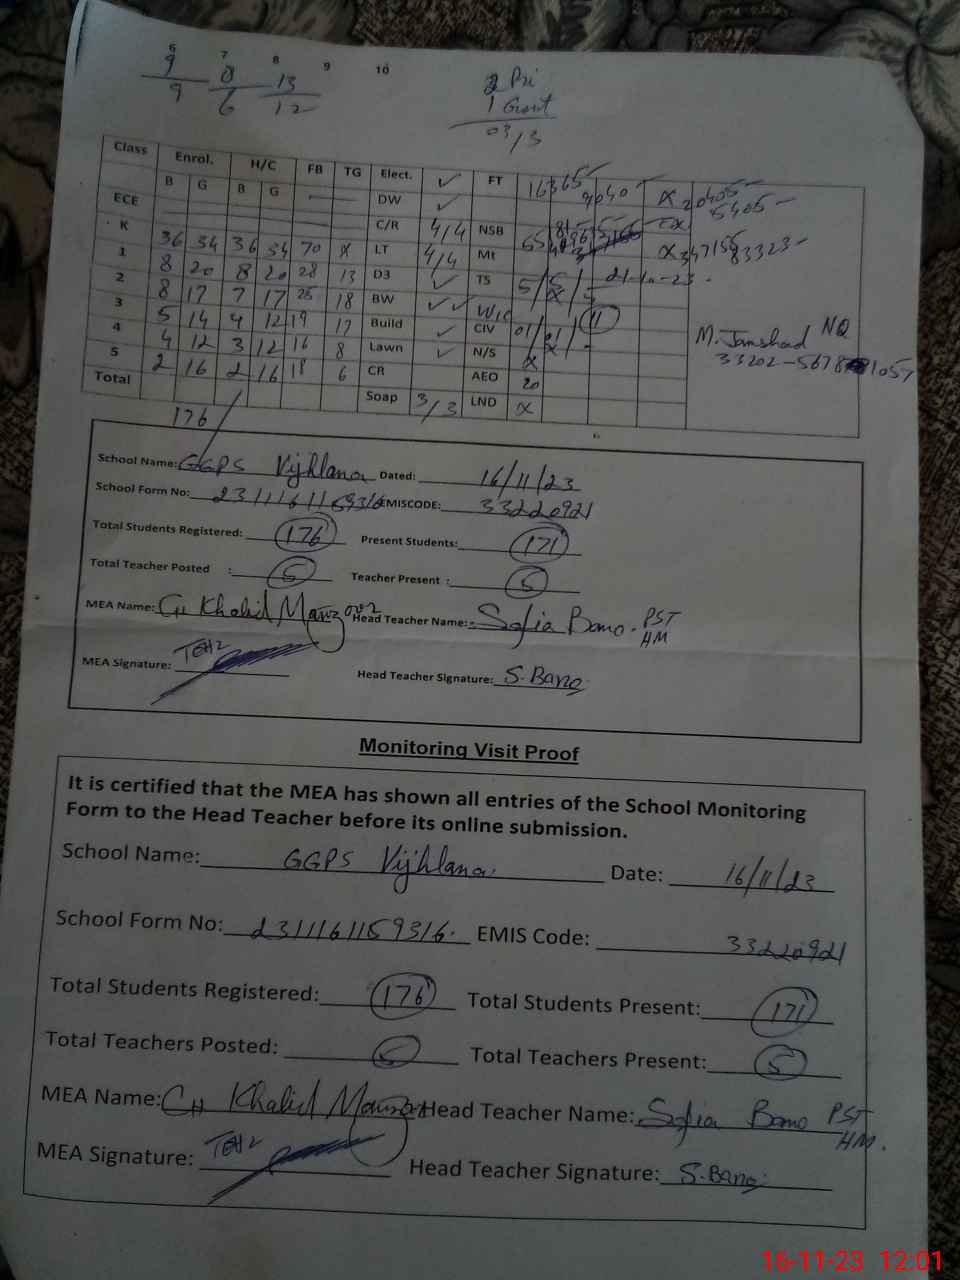 6 7 8 9 10
9 8 13
9 6 12
2 Pri
1 Govt
03/3
Class Enrol. H/C FB TG Elect. ✓ FT 16365 x 20405
B G B G DW ✓ 5405
ECE C/R 4/4 NSB
K 36 34 36 34 70 x LT 4/4 Mt
1 8 20 8 20 28 13 D3 ✓ TS 5/5/
2 8 17 7 17 25 18 BW ✓✓ CIV 01/01/- 11
3 5 14 4 12 19 17 Build ✓ N/S x
4 4 12 3 12 16 8 Lawn ✓ AEO 20
5 2 16 2 16 18 6 CR LND x
Total Soap 3/3
176
M. Jamshad NQ
33202-5678 1057
School Name: GGPS Vijhlana Dated: 16/11/23
School Form No: 2311161159316 EMISCODE: 33220921
Total Students Registered: 176 Present Students: 171
Total Teacher Posted : 5 Teacher Present : 5
MEA Name: CH Khalid Manzoor Head Teacher Name: Sofia Bano. PST HM
MEA Signature: Head Teacher Signature: S.Bano
Monitoring Visit Proof
It is certified that the MEA has shown all entries of the School Monitoring
Form to the Head Teacher before its online submission.
School Name: GGPS Vijhlana Date: 16/11/23
School Form No: 2311161159316. EMIS Code: 33220921
Total Students Registered: 176 Total Students Present: 171
Total Teachers Posted: 5 Total Teachers Present: 5
MEA Name: CH Khalid Manzoor Head Teacher Name: Sofia Bano PST HM.
MEA Signature: Head Teacher Signature: S.Bano
16-11-23 12:01